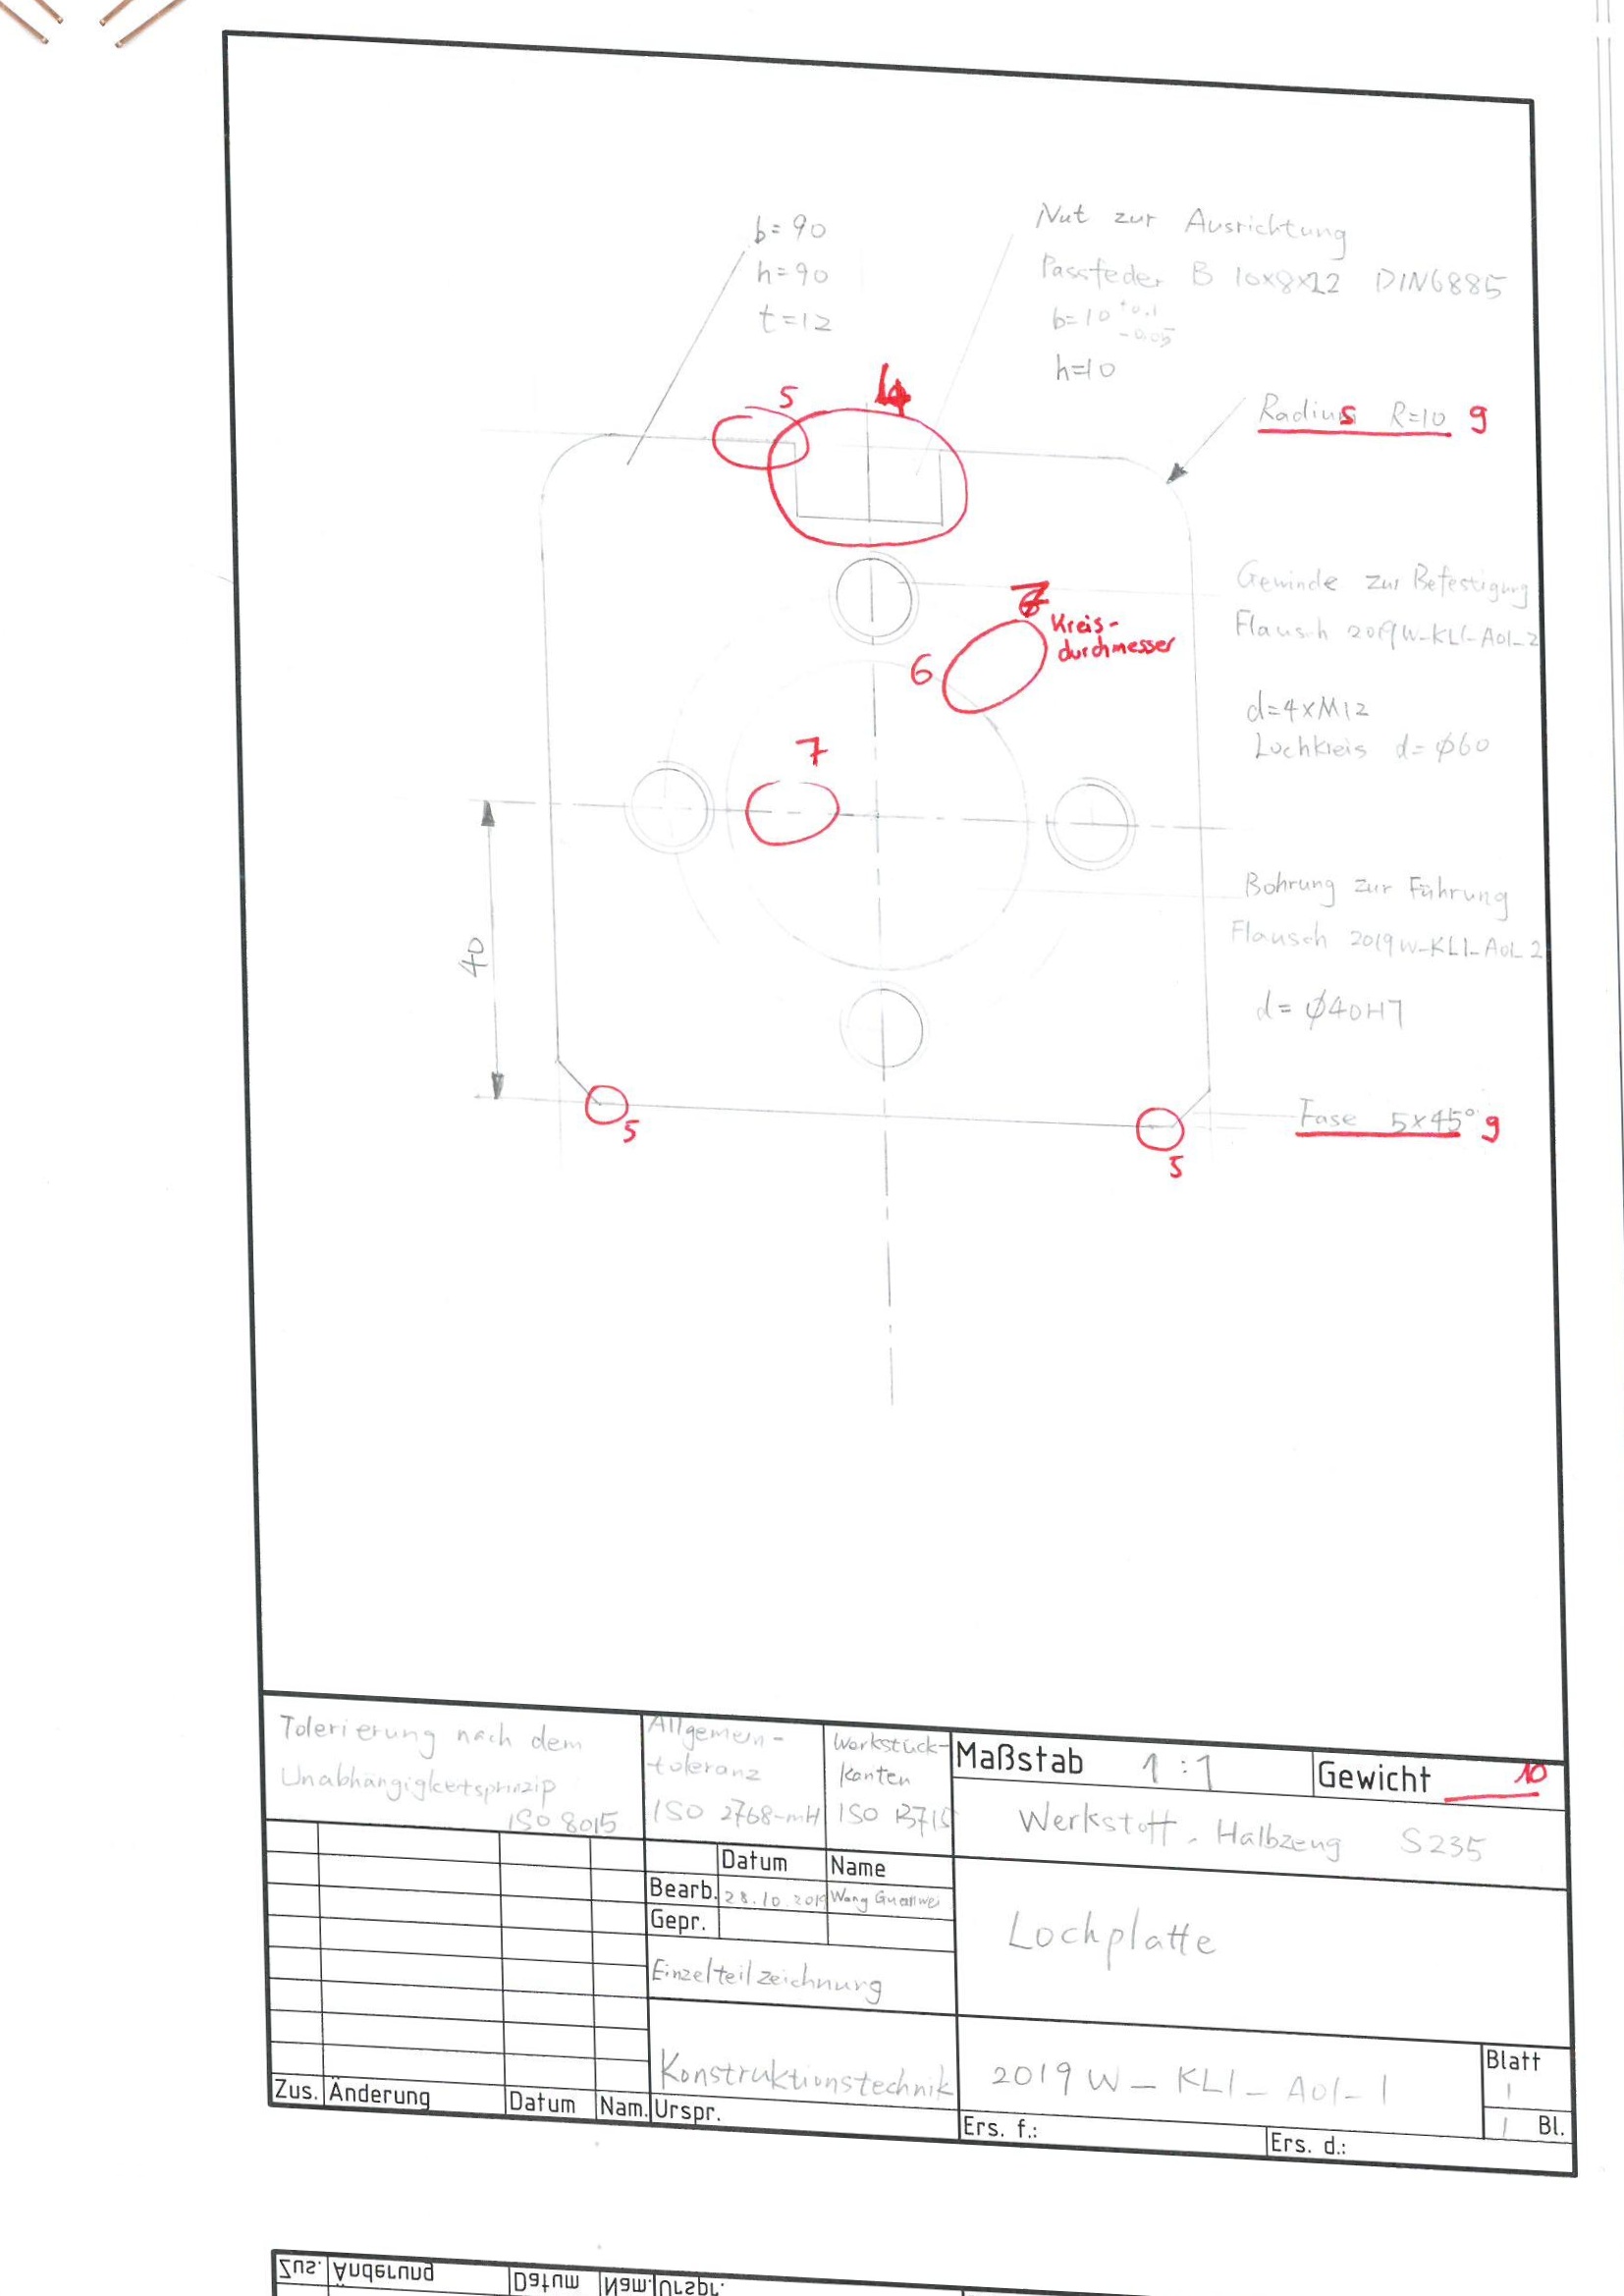 b=90
h=90
t=12
Nut zur Ausrichtung
Passfeder B 10x8x12 DIN6885
b=10 +0.1
-0.05
h=10
5
4
Radius R=10 9
Gewinde zur Befestigung
Flausch 2019W-KLI-A01-2
7
Kreis-
durchmesser
6
d=4xM12
Lochkreis d=Ø60
7
Bohrung zur Führung
Flausch 2019W-KLI-A01-2
40
d= Ø40H7
5
Fase 5x45° 9
5
Tolerierung nach dem
Unabhängigkeitsprinzip
ISO 8015
Allgemein-
toleranz
ISO 2768-mH
Werkstück-
kanten
ISO 13715
Maßstab 1:1
Gewicht 10
Werkstoff, Halbzeug S235
Datum Name
Bearb. 28.10.2019 Wang Guanwei
Gepr.
Lochplatte
Einzelteilzeichnung
Konstruktionstechnik
2019W-KLI-A01-1
Blatt
1
1 Bl.
Zus. Änderung Datum Nam. Urspr.
Ers. f.: Ers. d.:
Zus. Änderung Datum Nam. Urspr.